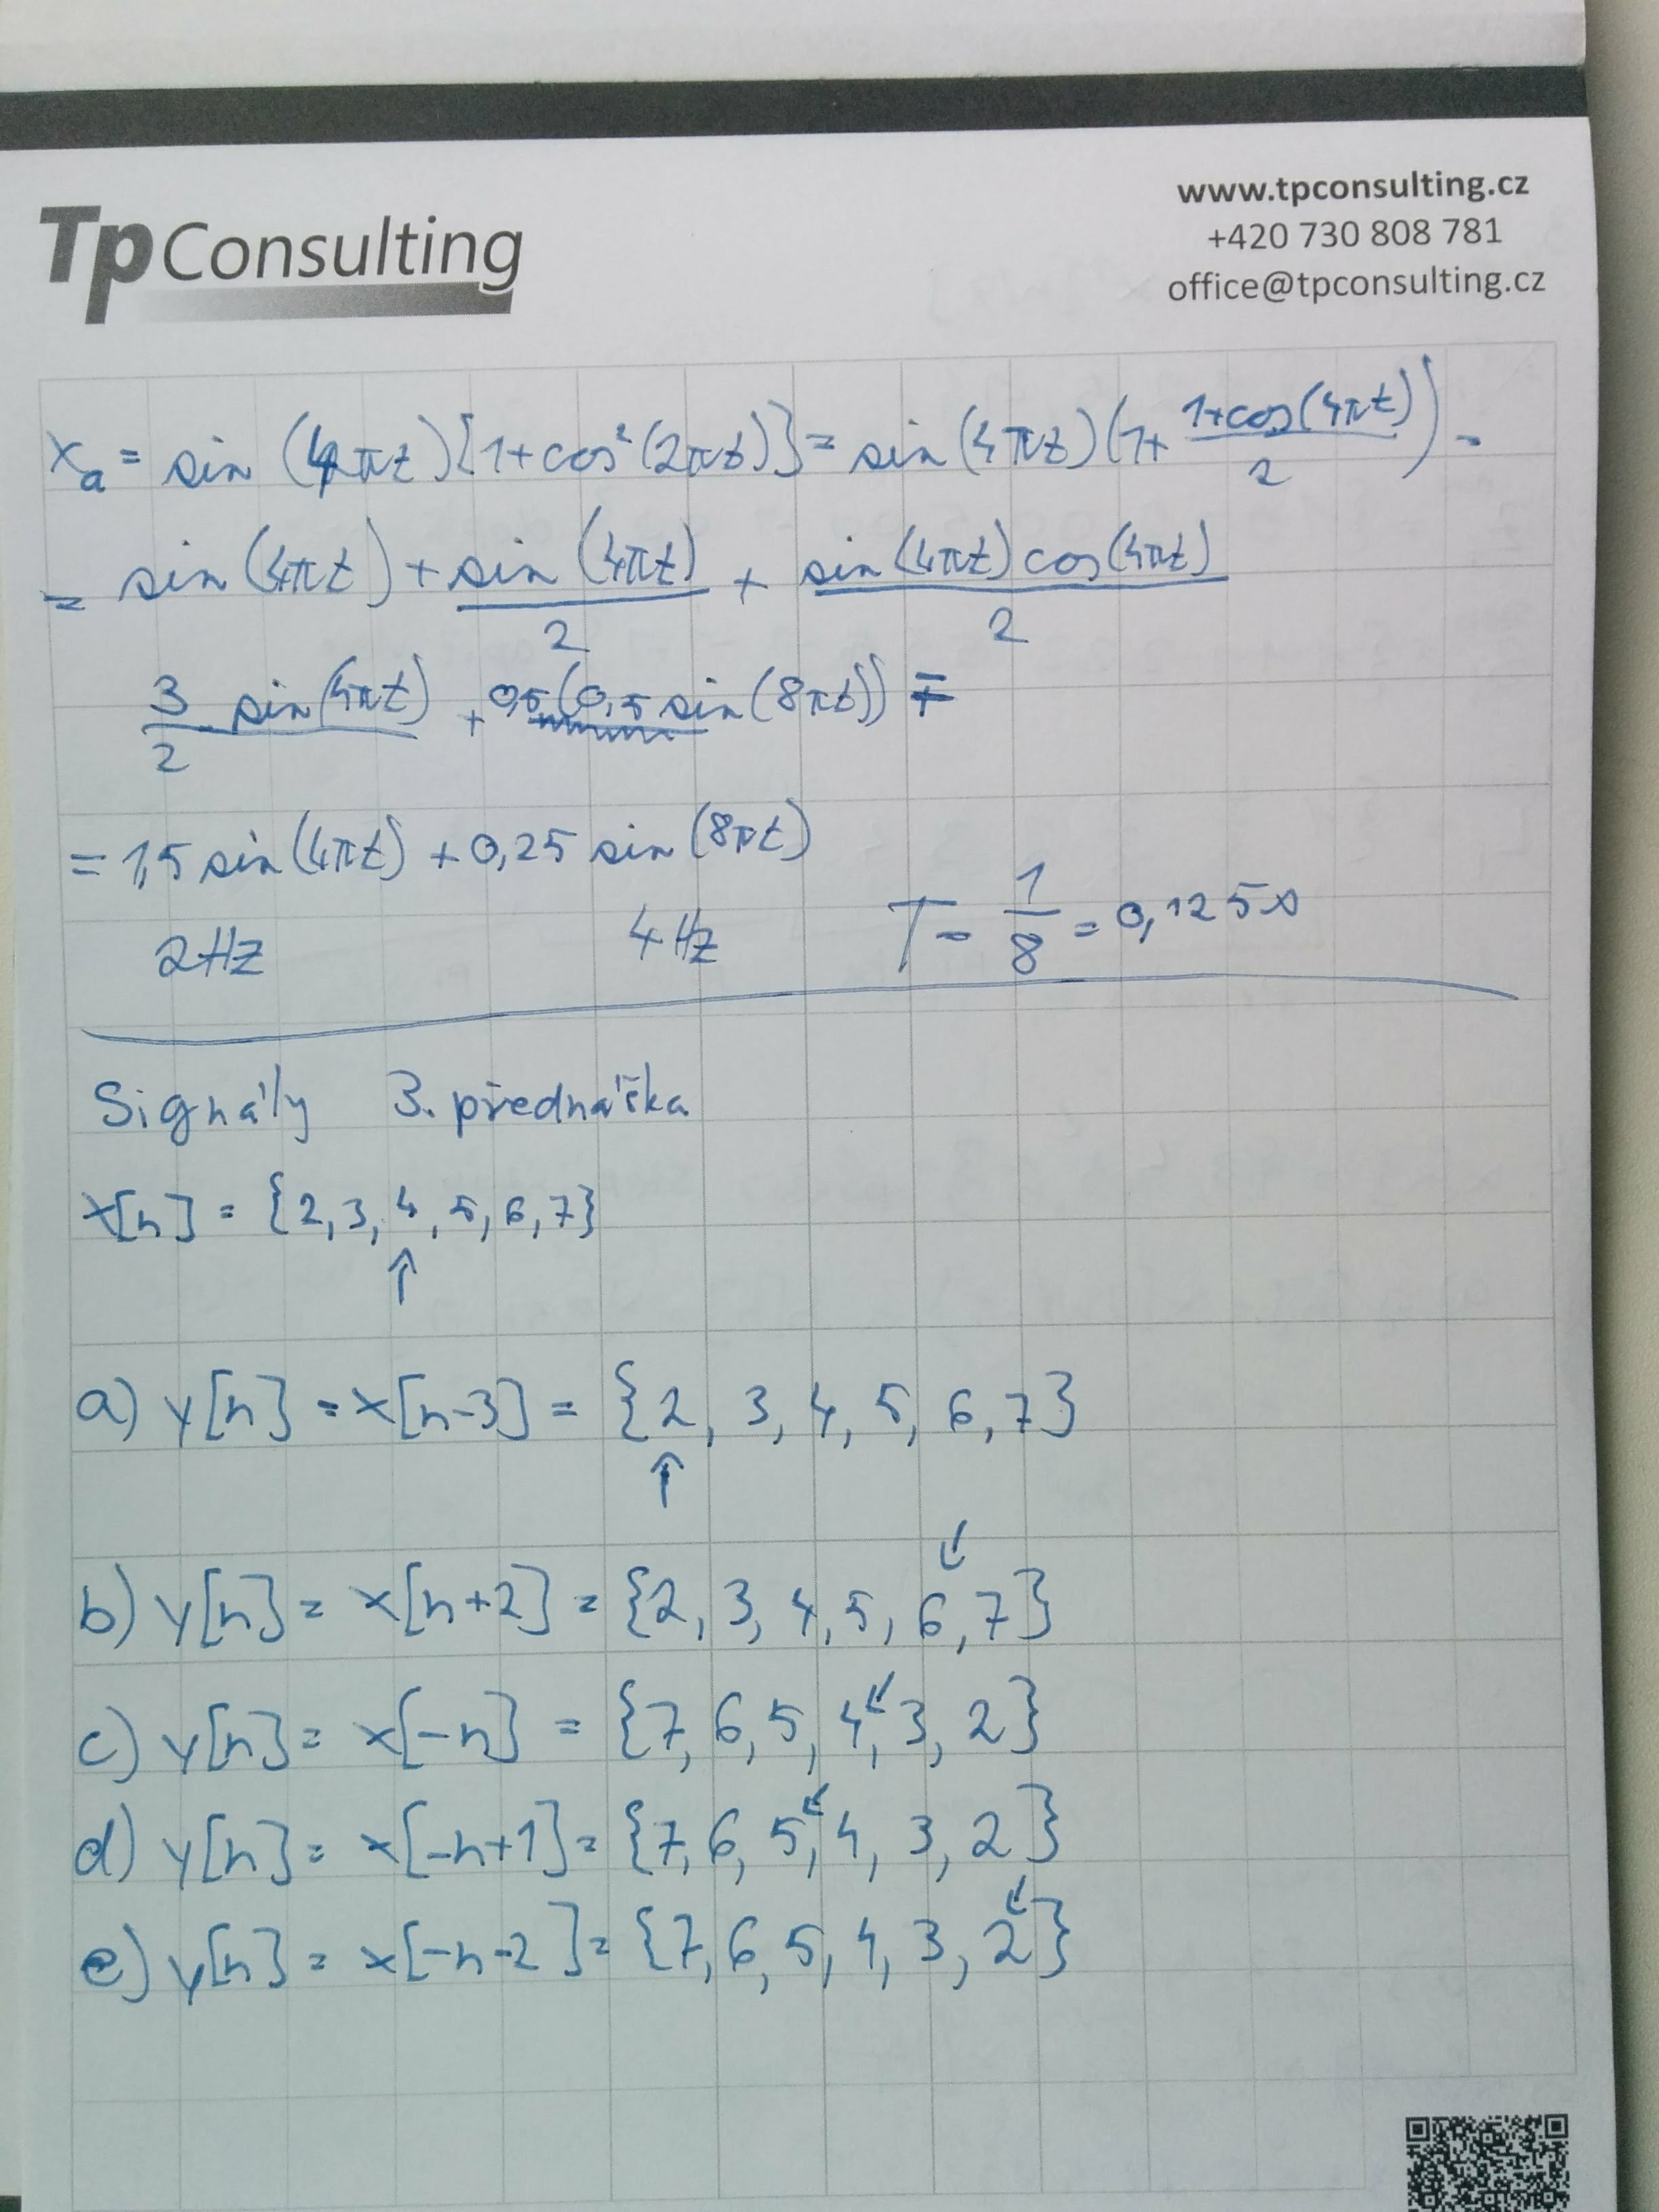 Tp Consulting
www.tpconsulting.cz
+420 730 808 781
office@tpconsulting.cz
xₐ = sin (4πt)[1+cos²(2πt)] = sin(4πt)(1+ (1+cos(4πt))/2) =
= sin(4πt) + sin(4πt)/2 + sin(4πt)cos(4πt)/2
3/2 sin(4πt) + 0,5(0,5 sin(8πt)) =
= 1,5 sin(4πt) + 0,25 sin(8πt)
2Hz 4Hz T = 1/8 = 0,125s
Signály 3. přednáška
x[n] = {2, 3, 4, 5, 6, 7}
↑
a) y[n] = x[n-3] = {2, 3, 4, 5, 6, 7}
↑
↙
b) y[n] = x[n+2] = {2, 3, 4, 5, 6, 7}
c) y[n] = x[-n] = {7, 6, 5, 4↙, 3, 2}
d) y[n] = x[-n+1] = {7, 6, 5↙, 4, 3, 2}
e) y[n] = x[-n-2] = {7, 6, 5, 4, 3, 2↙}